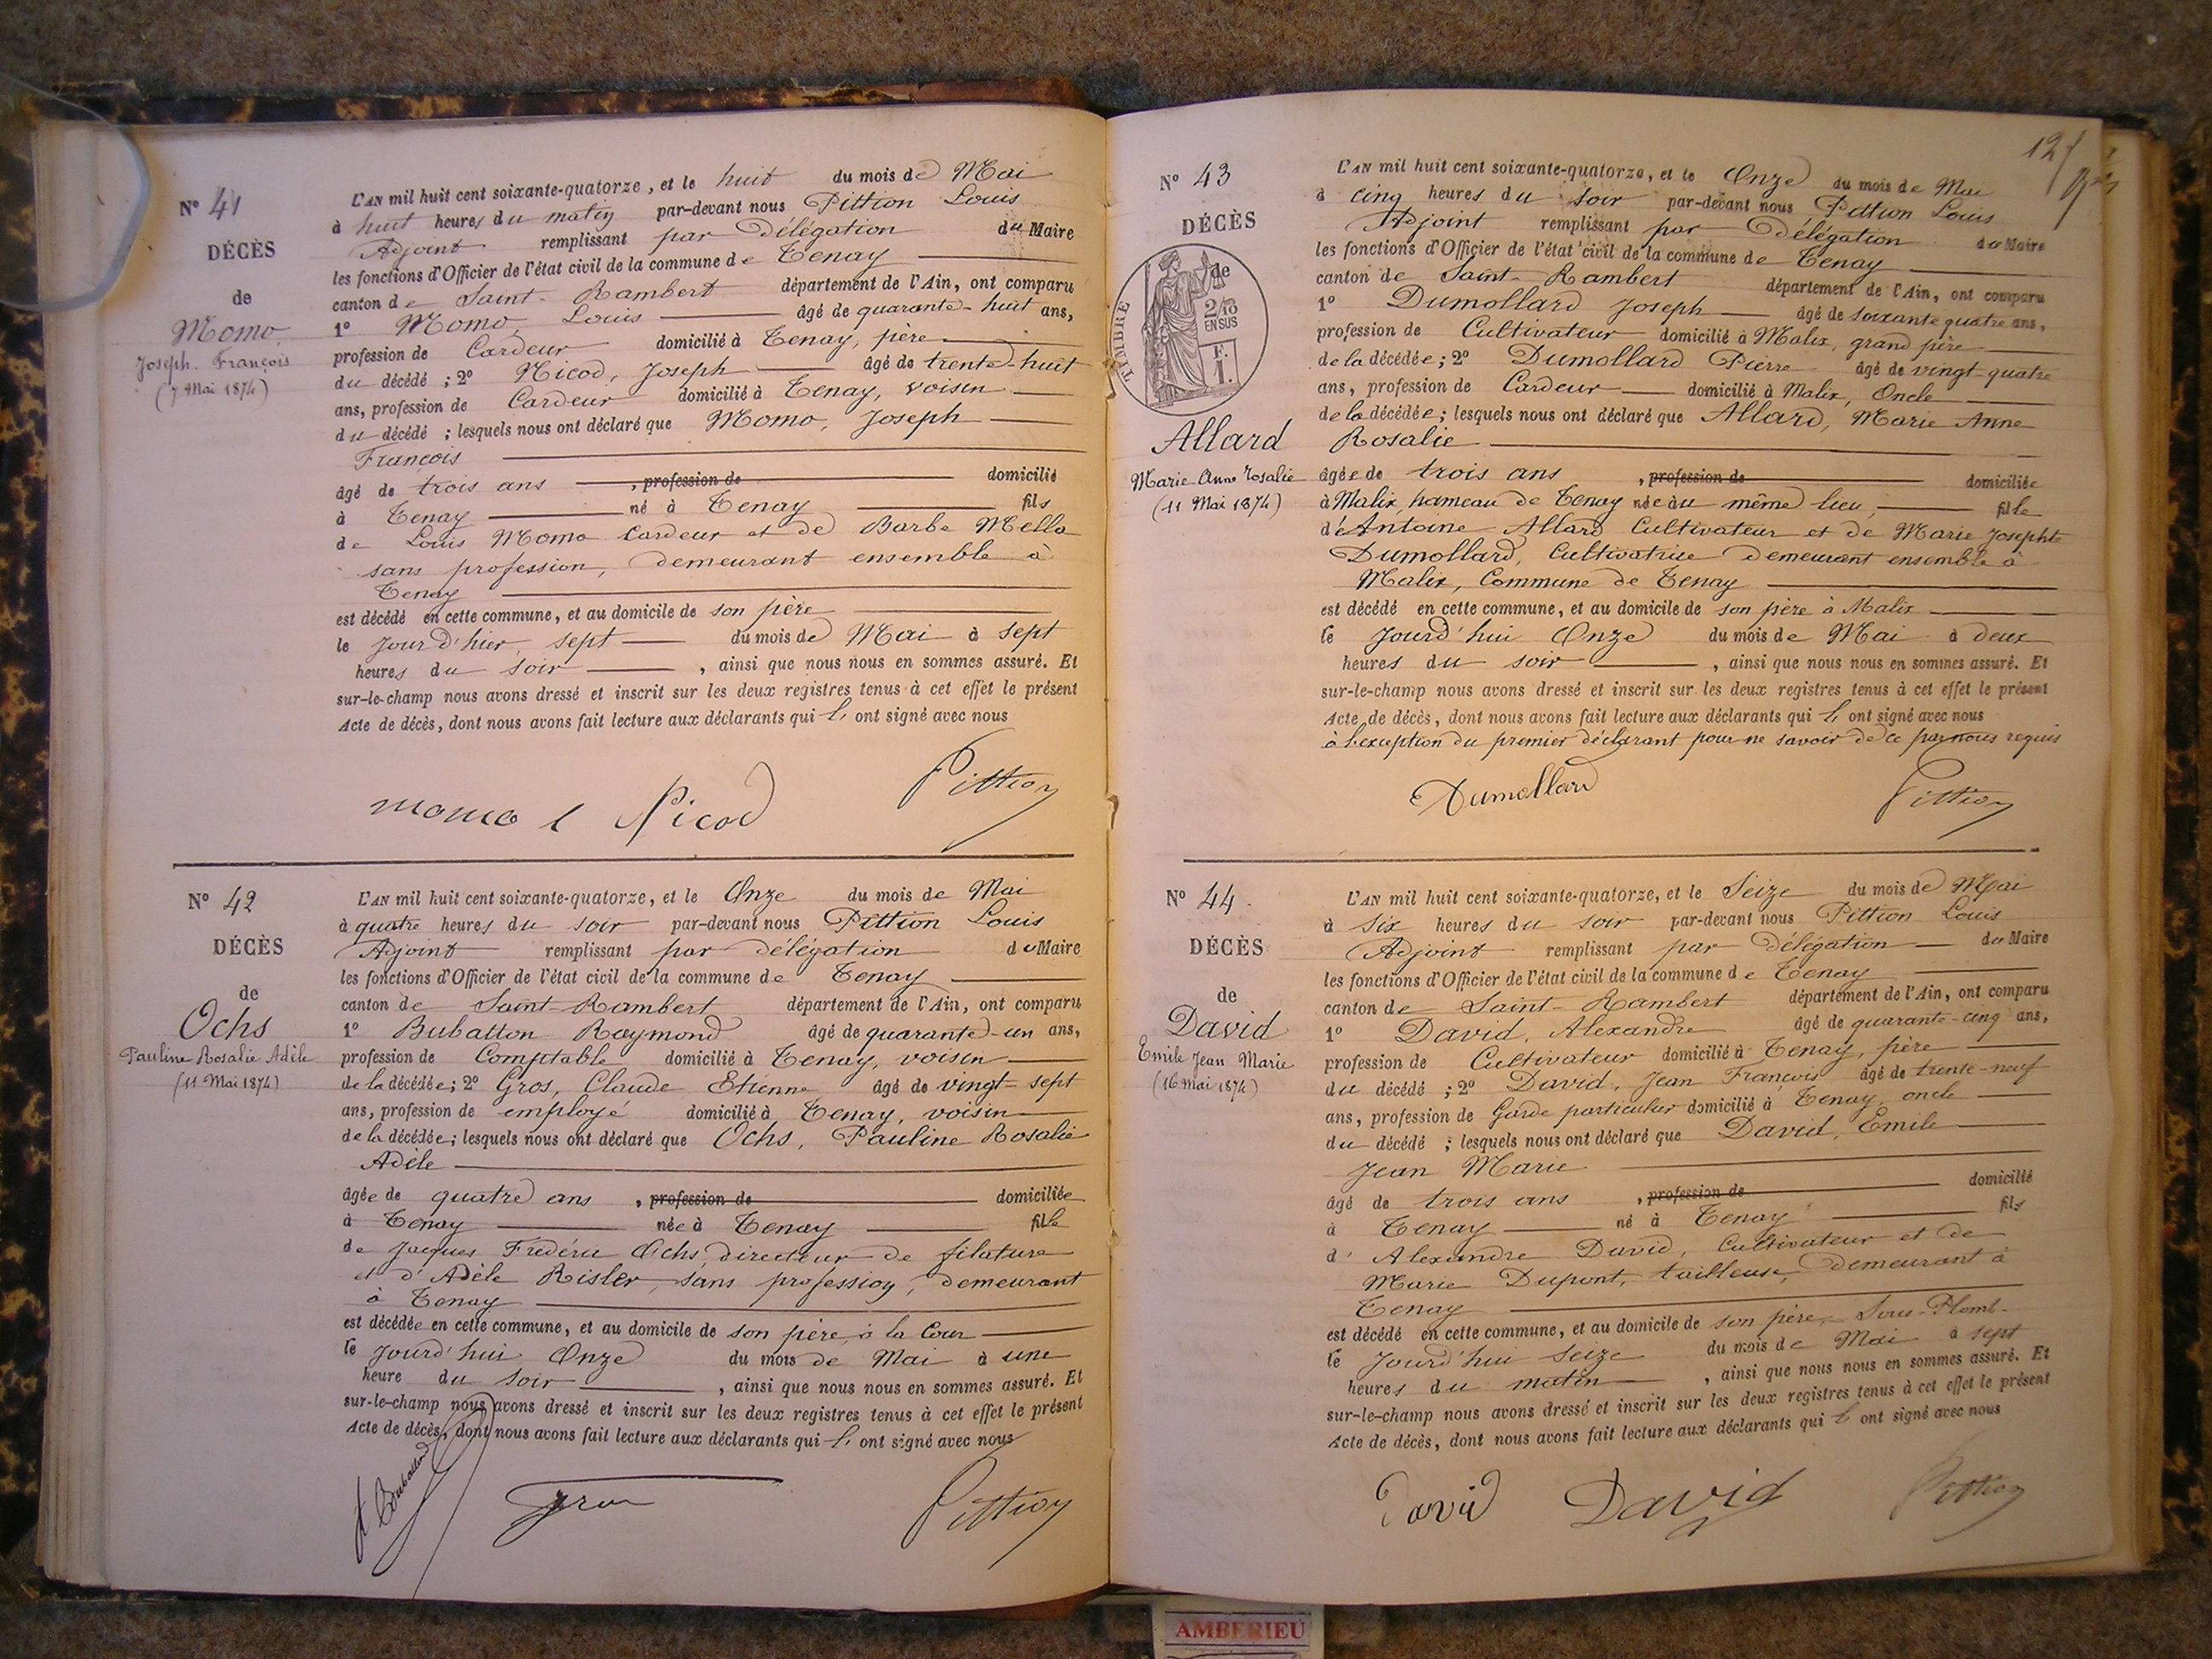 N° 41
DÉCÈS
de
Momo
Joseph François
(7 Mai 1874)
L'AN mil huit cent soixante-quatorze, et le huit du mois de Mai
à huit heures du matin par-devant nous Pittion Louis
Adjoint remplissant par délégation du Maire
les fonctions d'Officier de l'état civil de la commune de Tenay
canton de Saint-Rambert département de l'Ain, ont comparu
1° Momo, Louis âgé de quarante-huit ans,
profession de Cardeur domicilié à Tenay, père
du décédé ; 2° Nicod, Joseph âgé de trente-huit
ans, profession de Cardeur domicilié à Tenay, voisin
du décédé ; lesquels nous ont déclaré que Momo, Joseph
François
âgé de trois ans , profession de domicilié
à Tenay né à Tenay fils
de Louis Momo Cardeur et de Barbe Mella
sans profession, demeurant ensemble à
Tenay
est décédé en cette commune, et au domicile de son père
le jour d'hier sept du mois de Mai à sept
heures du soir , ainsi que nous nous en sommes assuré. Et
sur-le-champ nous avons dressé et inscrit sur les deux registres tenus à cet effet le présent
Acte de décès, dont nous avons fait lecture aux déclarants qui l' ont signé avec nous
momo l Nicod Pittion
N° 42
DÉCÈS
de
Ochs
Pauline Rosalie Adèle
(11 Mai 1874)
L'AN mil huit cent soixante-quatorze, et le Onze du mois de Mai
à quatre heures du soir par-devant nous Pittion Louis
Adjoint remplissant par délégation du Maire
les fonctions d'Officier de l'état civil de la commune de Tenay
canton de Saint-Rambert département de l'Ain, ont comparu
1° Bubatton Raymond âgé de quarante-un ans,
profession de Comptable domicilié à Tenay, voisin
de la décédée ; 2° Gros, Claude Etienne âgé de vingt-sept
ans, profession de employé domicilié à Tenay, voisin
de la décédée ; lesquels nous ont déclaré que Ochs, Pauline Rosalie
Adèle
âgée de quatre ans , profession de domiciliée
à Tenay née à Tenay fille
de Jacques Frédéric Ochs, directeur de filature
et d'Adèle Risler, sans profession, demeurant
à Tenay
est décédée en cette commune, et au domicile de son père à la Cour
le jourd'hui Onze du mois de Mai à une
heure du soir , ainsi que nous nous en sommes assuré. Et
sur-le-champ nous avons dressé et inscrit sur les deux registres tenus à cet effet le présent
Acte de décès, dont nous avons fait lecture aux déclarants qui l' ont signé avec nous
Gros Pittion
12
N° 43
DÉCÈS
de
TIMBRE
2/10
EN SUS
F.
1.
Allard
Marie Anne Rosalie
(11 Mai 1874)
L'AN mil huit cent soixante-quatorze, et le Onze du mois de Mai
à cinq heures du soir par-devant nous Pittion Louis
Adjoint remplissant par délégation du Maire
les fonctions d'Officier de l'état civil de la commune de Tenay
canton de Saint-Rambert département de l'Ain, ont comparu
1° Dumollard Joseph âgé de soixante quatre ans,
profession de Cultivateur domicilié à Malix, grand père
de la décédée ; 2° Dumollard Pierre âgé de vingt-quatre
ans, profession de Cardeur domicilié à Malix, Oncle
de la décédée ; lesquels nous ont déclaré que Allard, Marie Anne
Rosalie
âgée de trois ans , profession de domiciliée
à Malix, hameau de Tenay née au même lieu, fille
d'Antoine Allard Cultivateur et de Marie Josephte
Dumollard, Cultivatrice demeurant ensemble à
Malix, Commune de Tenay
est décédé en cette commune, et au domicile de son père à Malix
le jourd'hui Onze du mois de Mai à deux
heures du soir , ainsi que nous nous en sommes assuré. Et
sur-le-champ nous avons dressé et inscrit sur les deux registres tenus à cet effet le présent
Acte de décès, dont nous avons fait lecture aux déclarants qui l' ont signé avec nous
à l'exception du premier déclarant pour ne savoir de ce par nous requis
Dumollard Pittion
N° 44
DÉCÈS
de
David
Emile Jean Marie
(16 Mai 1874)
L'AN mil huit cent soixante-quatorze, et le Seize du mois de Mai
à six heures du soir par-devant nous Pittion Louis
Adjoint remplissant par délégation du Maire
les fonctions d'Officier de l'état civil de la commune de Tenay
canton de Saint-Rambert département de l'Ain, ont comparu
1° David, Alexandre âgé de quarante-cinq ans,
profession de Cultivateur domicilié à Tenay, père
du décédé ; 2° David, Jean François âgé de trente-neuf
ans, profession de Garde particulier domicilié à Tenay, oncle
du décédé ; lesquels nous ont déclaré que David, Emile
Jean Marie
âgé de trois ans , profession de domicilié
à Tenay né à Tenay fils
d'Alexandre David, Cultivateur et de
Marie Dupont, tailleuse, demeurant à
Tenay
est décédé en cette commune, et au domicile de son père Sous-Plomb
le jourd'hui seize du mois de Mai à sept
heures du matin , ainsi que nous nous en sommes assuré. Et
sur-le-champ nous avons dressé et inscrit sur les deux registres tenus à cet effet le présent
Acte de décès, dont nous avons fait lecture aux déclarants qui l' ont signé avec nous
David David Pittion
AMBERIEU